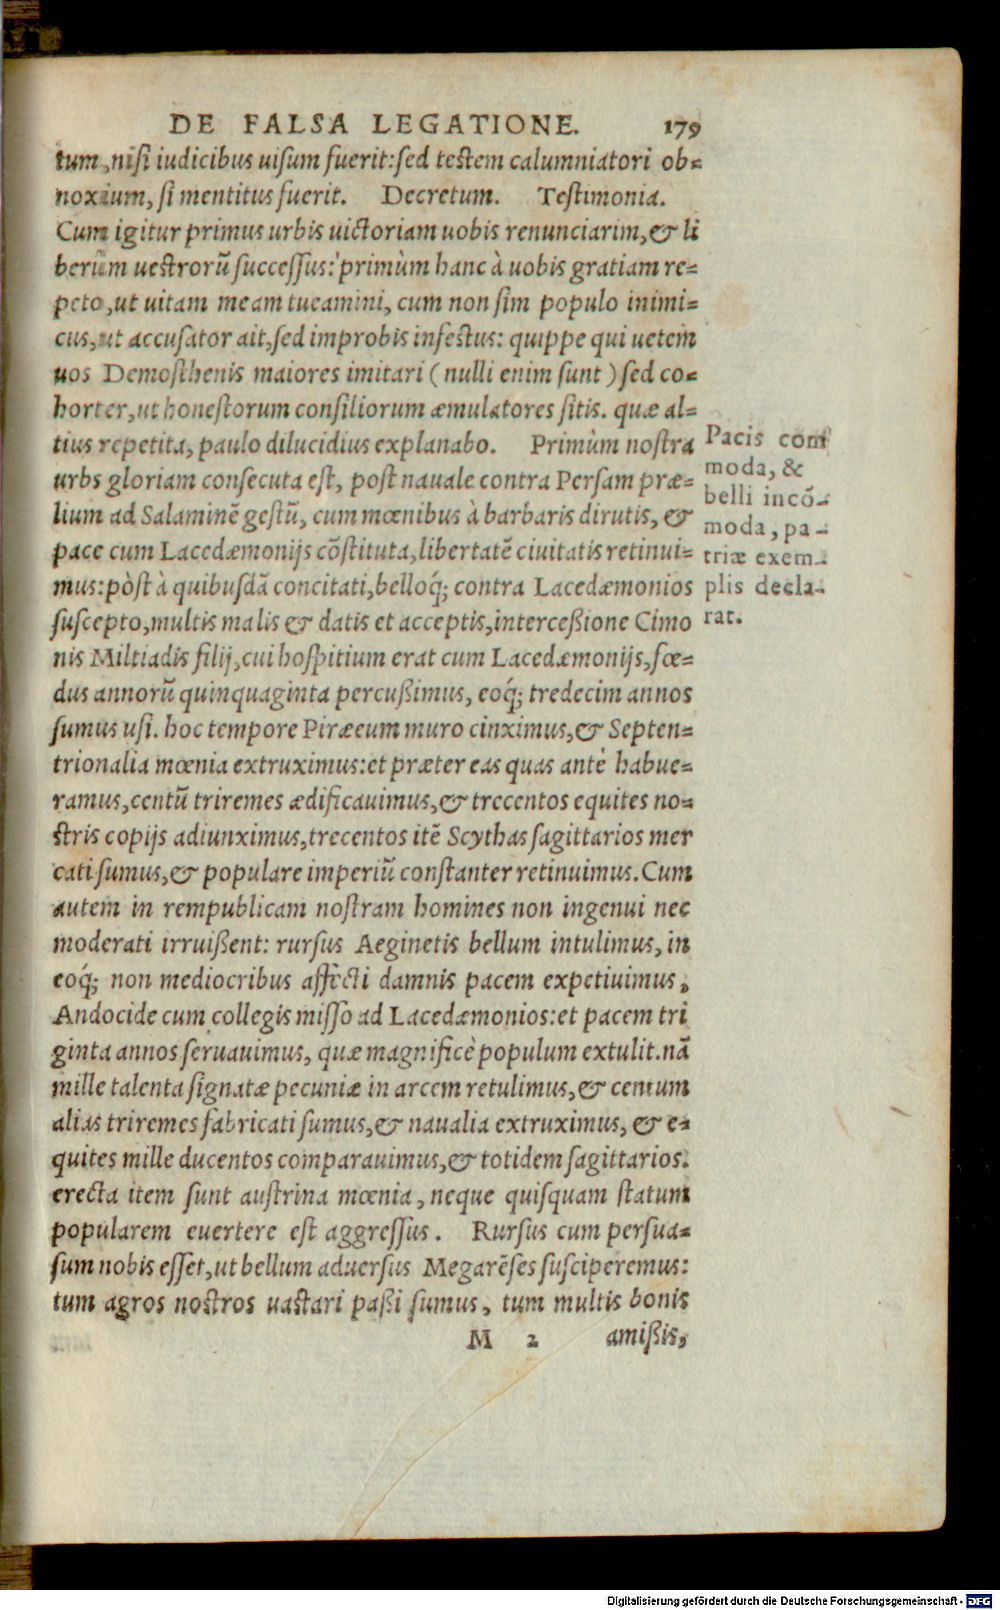 DE FALSA LEGATIONE. 179
tum, nisi iudicibus uisum fuerit: sed testem calumniatori ob-
noxium, si mentitus fuerit. Decretum. Testimonia.
Cum igitur primus urbis uictoriam uobis renunciarim, & li
berûm uestrorũ successus: primùm hanc à uobis gratiam re-
peto, ut uitam meam tueamini, cum non sim populo inimi-
cus, ut accusator ait, sed improbis infestus: quippe qui uetem
uos Demosthenis maiores imitari (nulli enim sunt) sed co-
horter, ut honestorum consiliorum æmulatores sitis. quæ al-
tius repetita, paulo dilucidius explanabo. Primùm nostra
urbs gloriam consecuta est, post nauale contra Persam præ-
lium ad Salaminẽ gestũ, cum mœnibus à barbaris dirutis, &
pace cum Lacedæmonijs cõstituta, libertatẽ ciuitatis retinui-
mus: pòst à quibusdã concitati, belloq́; contra Lacedæmonios
suscepto, multis malis & datis et acceptis, interceßione Cimo
nis Miltiadis filij, cui hospitium erat cum Lacedæmonijs, fœ-
dus annorũ quinquaginta percußimus, eoq́; tredecim annos
sumus usi. hoc tempore Piræeum muro cinximus, & Septen-
trionalia mœnia extruximus: et præter eas quas antè habue-
ramus, centũ triremes ædificauimus, & trecentos equites no-
stris copijs adiunximus, trecentos itẽ Scythas sagittarios mer
cati sumus, & populare imperiũ constanter retinuimus. Cum
autem in rempublicam nostram homines non ingenui nec
moderati irruißent: rursus Aeginetis bellum intulimus, in
eoq́; non mediocribus affecti damnis pacem expetiuimus,
Andocide cum collegis misso ad Lacedæmonios: et pacem tri
ginta annos seruauimus, quæ magnificè populum extulit. nã
mille talenta signatæ pecuniæ in arcem retulimus, & centum
alias triremes fabricati sumus, & naualia extruximus, & e-
quites mille ducentos comparauimus, & totidem sagittarios.
erecta item sunt austrina mœnia, neque quisquam statum
popularem euertere est aggressus. Rursus cum persua-
sum nobis esset, ut bellum aduersus Megarẽses susciperemus:
tum agros nostros uastari paßi sumus, tum multis bonis
M 2 amißis,
Pacis com
moda, &
belli incõ-
moda, pa-
triæ exem-
plis decla-
rat.
Digitalisierung gefördert durch die Deutsche Forschungsgemeinschaft - DFG